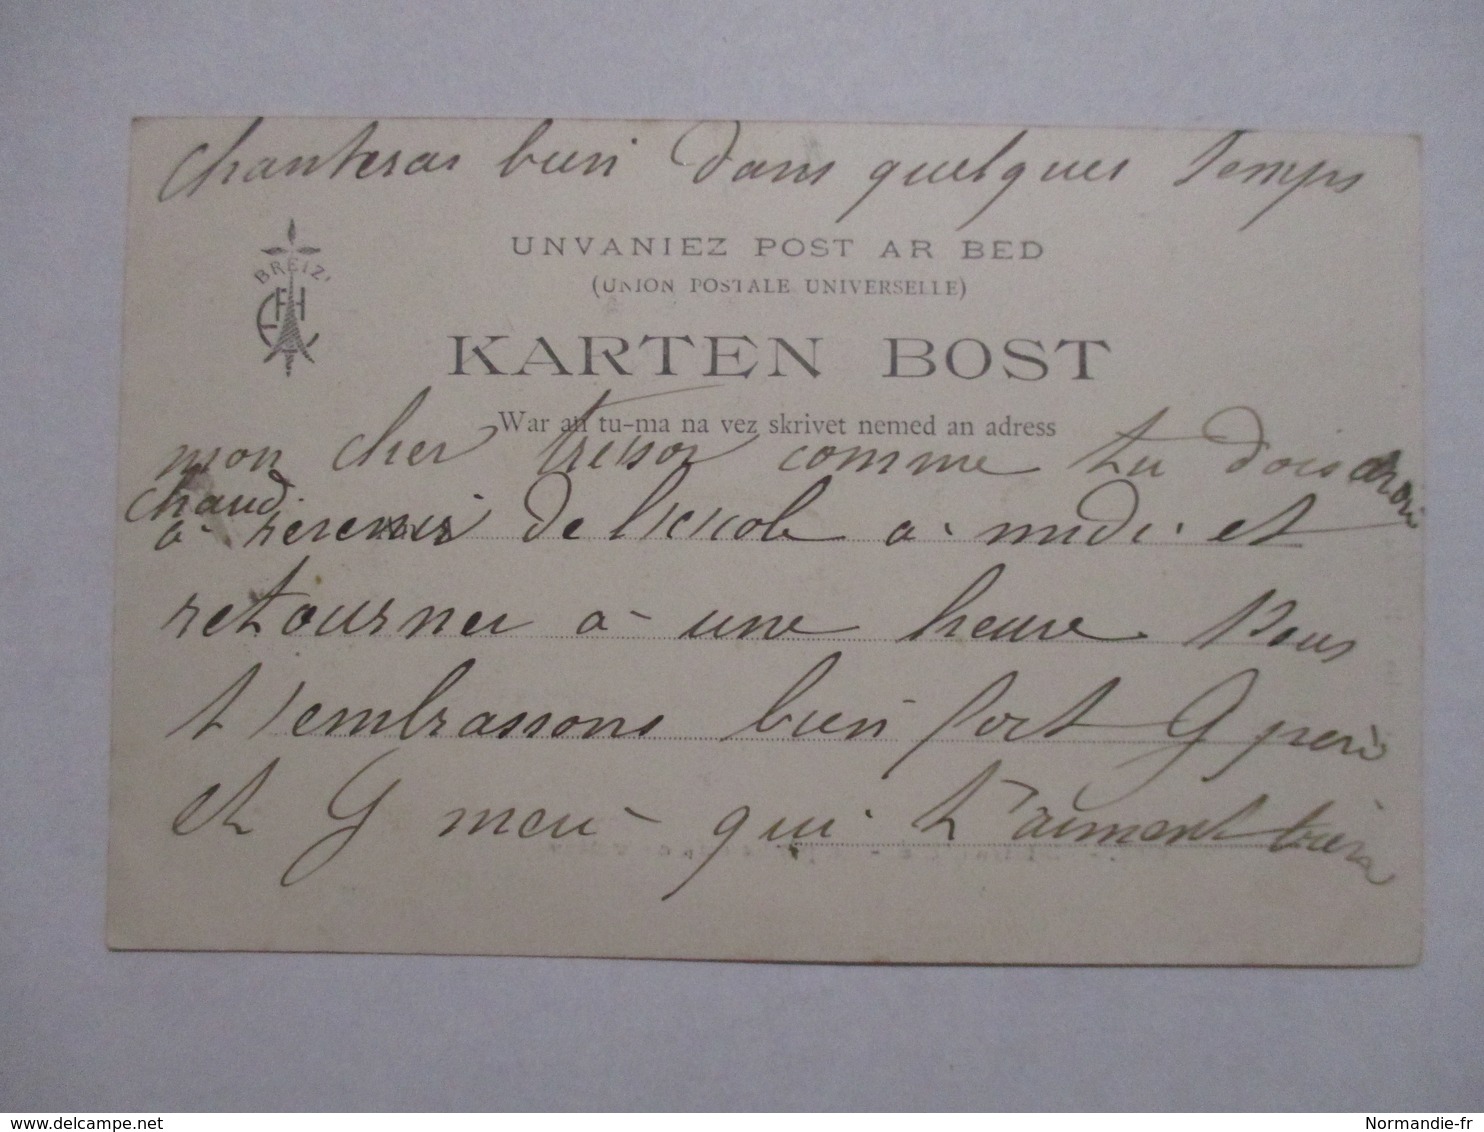 chanteras bien dans quelques temps
BREIZ'
UNVANIEZ POST AR BED
(UNION POSTALE UNIVERSELLE)
KARTEN BOST
War an tu-ma na vez skrivet nemed an adress
mon cher tresor comme tu dois avoir
chaud
a revenir de l'ecole a midi et
retourner a une heure Nous
t'embrassons bien fort G père
et G mere qui t'aiment bien
www.delcampe.net
Normandie-fr